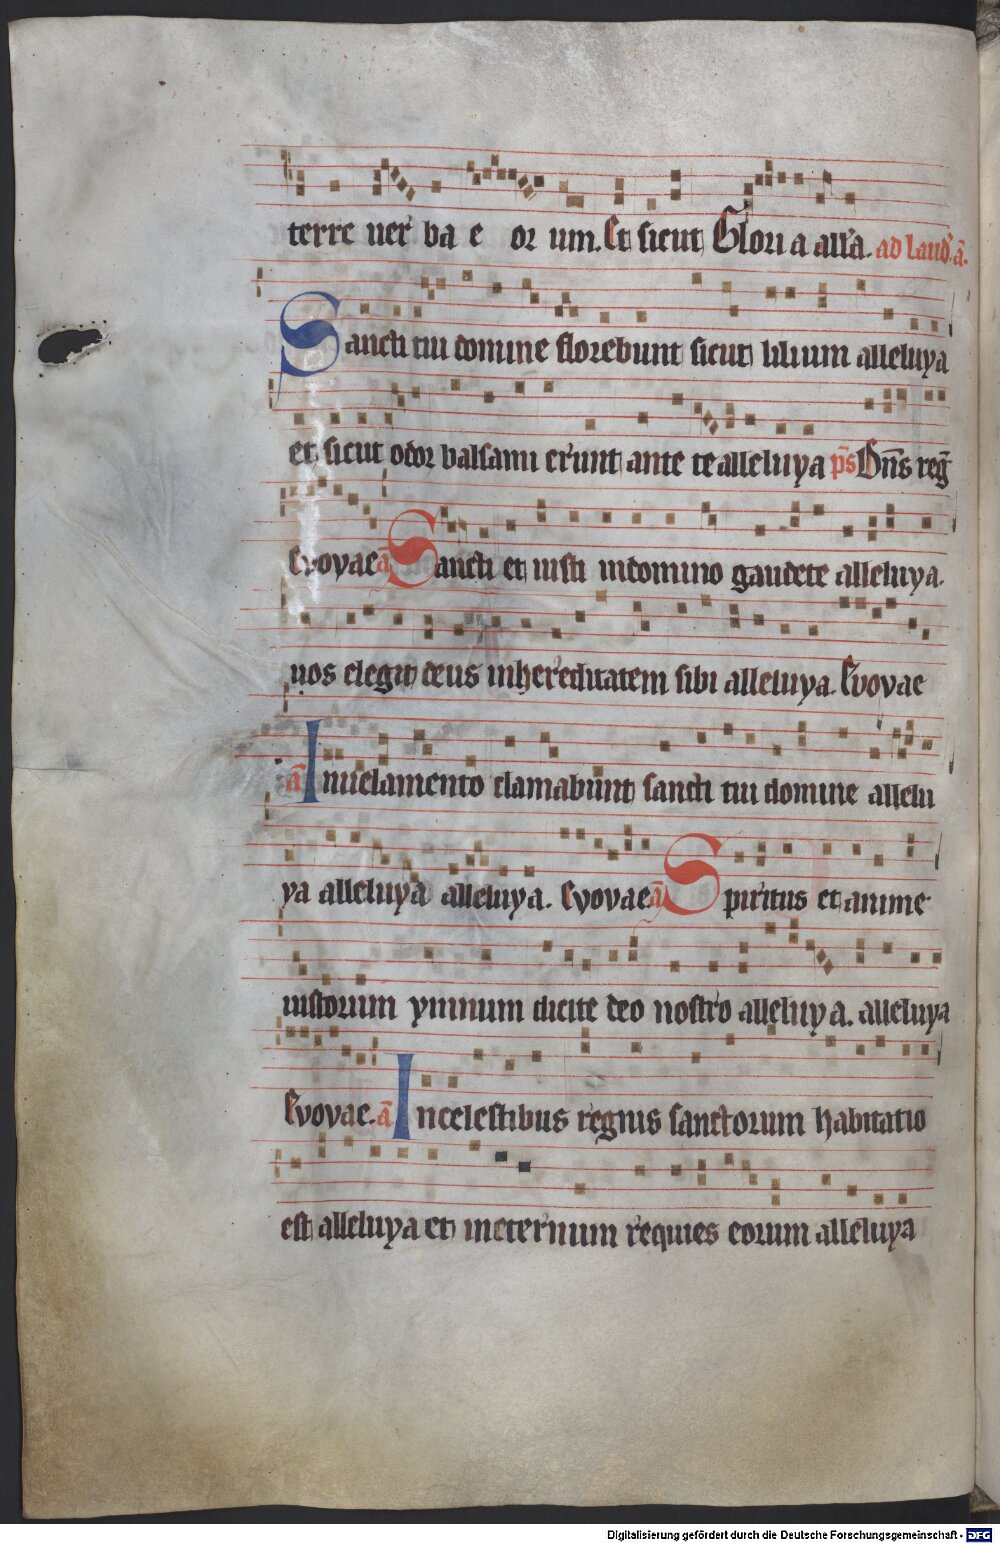 terre uer ba e or um. Et sicut Glori a all'a. ad laud' a̅.
Sancti tui domine florebunt sicut lilium alleluya
et sicut odor balsami erunt ante te alleluya p̅s Dn̅s reg̅
Evovae a̅ Sancti et iusti in domino gaudete alleluya.
uos elegit deus in hereditatem sibi alleluya. Evovae
a̅ In uelamento clamabunt sancti tui domine allelu
ya alleluya alleluya. Evovae a̅ Spiritus et anime
iustorum ymnum dicite deo nostro alleluya. alleluya
Evovae. a̅ In celestibus regnis sanctorum habitatio
est alleluya et in eternum requies eorum alleluya
Digitalisierung gefördert durch die Deutsche Forschungsgemeinschaft - DFG